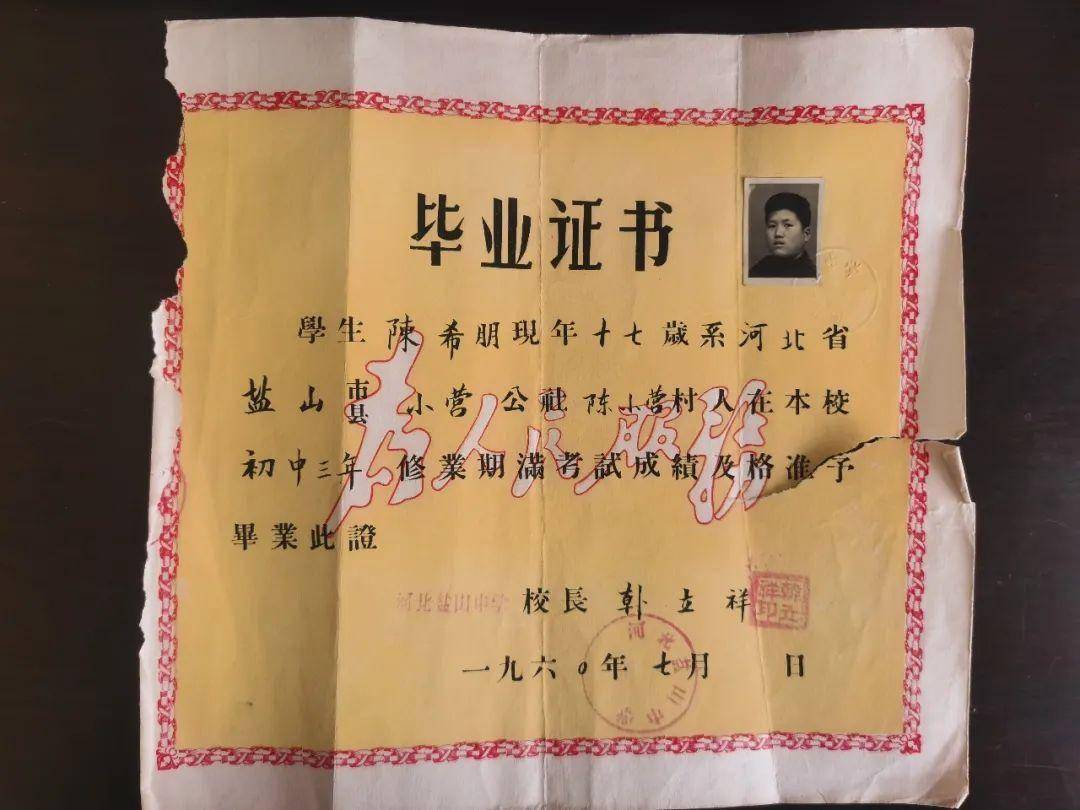 毕业证书
學生陳希朋現年十七歲系河北省
盐山市县小营公社陈小营村人在本校
初中三年修業期滿考試成績及格准予
畢業此證
为人民服務
河北盐山中学校長韩立祥
韩立祥印
一九六0年七月 日
河北盐山中学